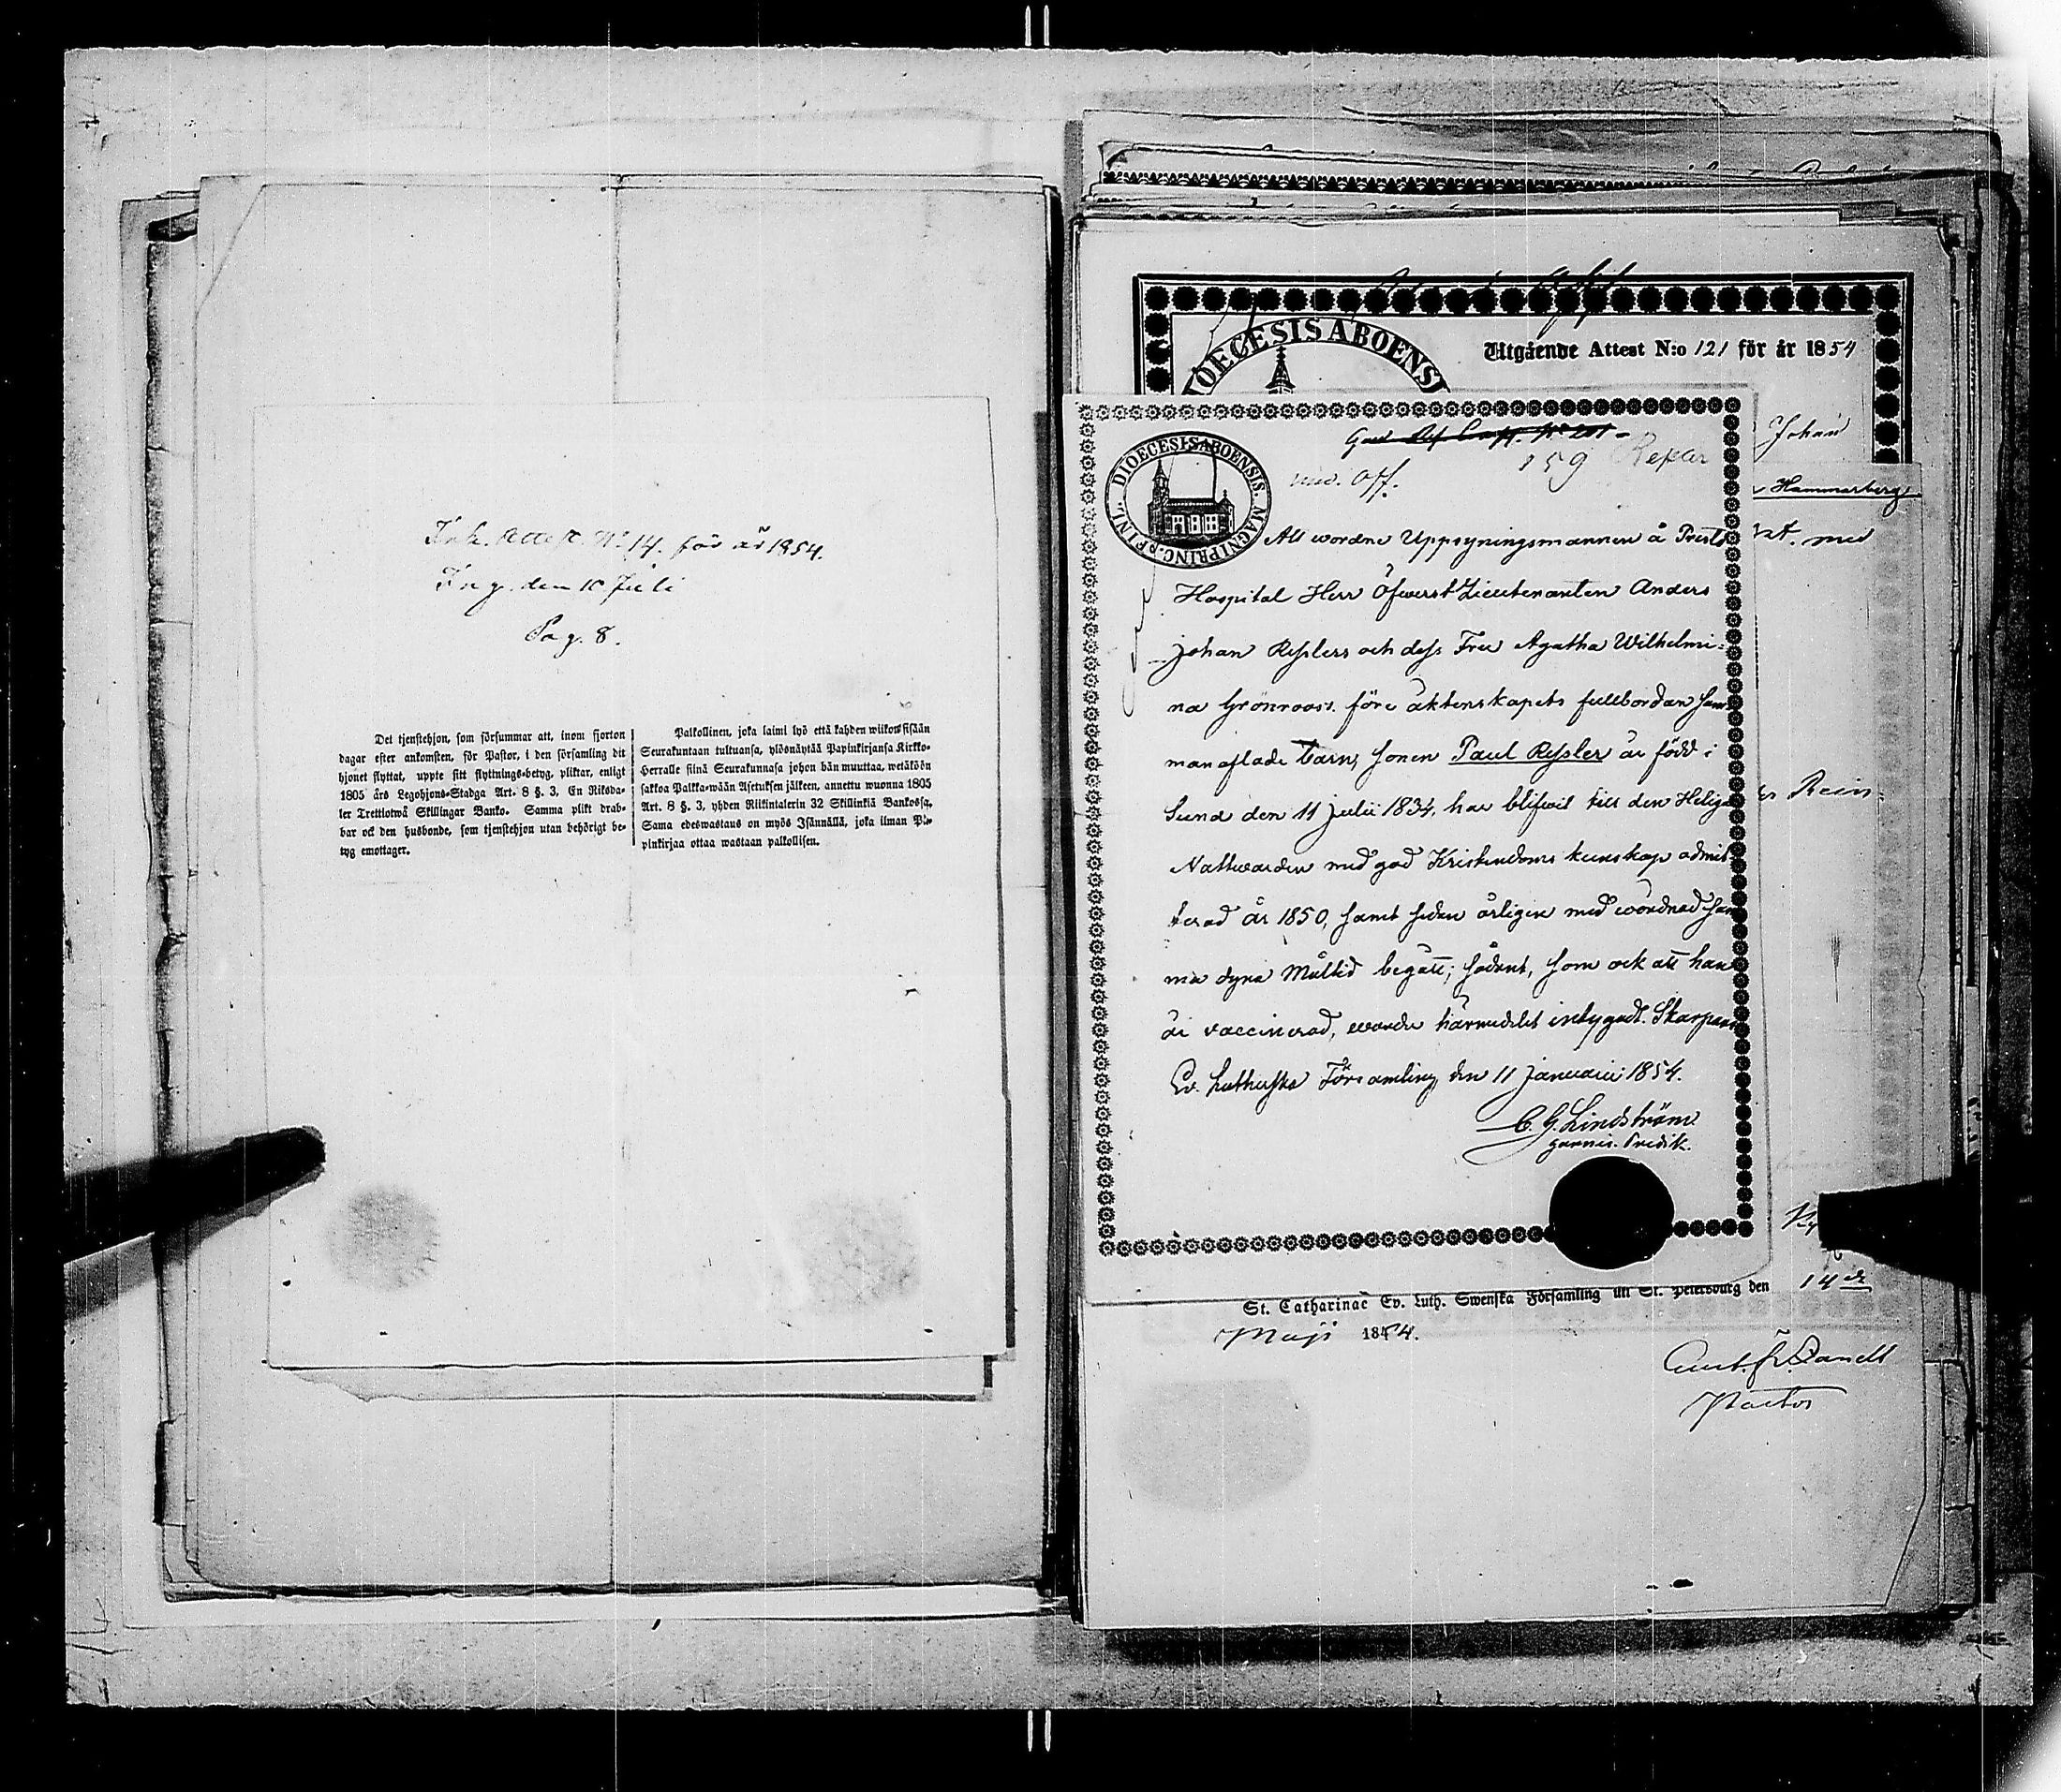 Ink. Attest. No 14. för år 1854.
Ing. den 10 Juli
Pag. 8.
Det tjenstehjon, som försummar att, inom fjorton
dagar efter ankomsten, för Pastor, i den församling dit
hjonet flyttat, uppte sitt flyttnings-betyg, pliktar, enligt
1805 års Legohjons-Stadga Art. 8 §. 3, En Riksda-
ler Trettiotwå Skillingar Banko. Samma plikt drab-
bar ock den husbonde, som tjenstehjon utan behörigt be-
tyg emottager.
Palkollinen, joka laimi lyö että kahden wiikon sisään
Seurakuntaan tultuansa, ylösnäytää Papinkirjansa Kirkko-
Herralle siinä Seurakunnasa johon hän muuttaa, wetäköön
sakkoa Palkka-wään Asetuksen jälkeen, annettu wuonna 1805
Art. 8 §. 3, yhden Riikintalerin 32 Skillinkiä Bankossa.
Sama edeswastaus on myös Isännällä, joka ilman Pa-
pinkirjaa ottaa wastaan palkollisen.
DIOECESIS ABOENS
Utgående Attest N:o 121 för år 1854
Johan
Hammarberg
med
Rein
159 Repar
und. Off.
DIOECESIS ABOENSIS. MAGNI PRINC. FINL.
All wordne Uppsyningsmannen å Prestö
Hospital Herr Öfwerst Lieutenanten Anders
Johan Resslers och dess Fru Agatha Wilhelmi-
na Grönroos's före äktenskapets fullbordan sam-
manaflade barn, Sonen Paul Ressler är född i
Sund den 11 Julii 1834, har blifwit till den Heliga
Nattwarden med god Kristendoms kunskap admit-
terad år 1850, samt sedan årligen med wördnad sam-
ma dyra Måltid begått; sådant, som ock att han
är vaccinerad, warder härmedelst intygadt. Skarpans
Ev. Lutherska Församling, den 11 Januarii 1854.
C. G. Lindström
garnis. Predik.
St. Catharinae Ev. Luth. Swenska Församling uti St. Petersburg den 14de
Maji 1854.
Pastor